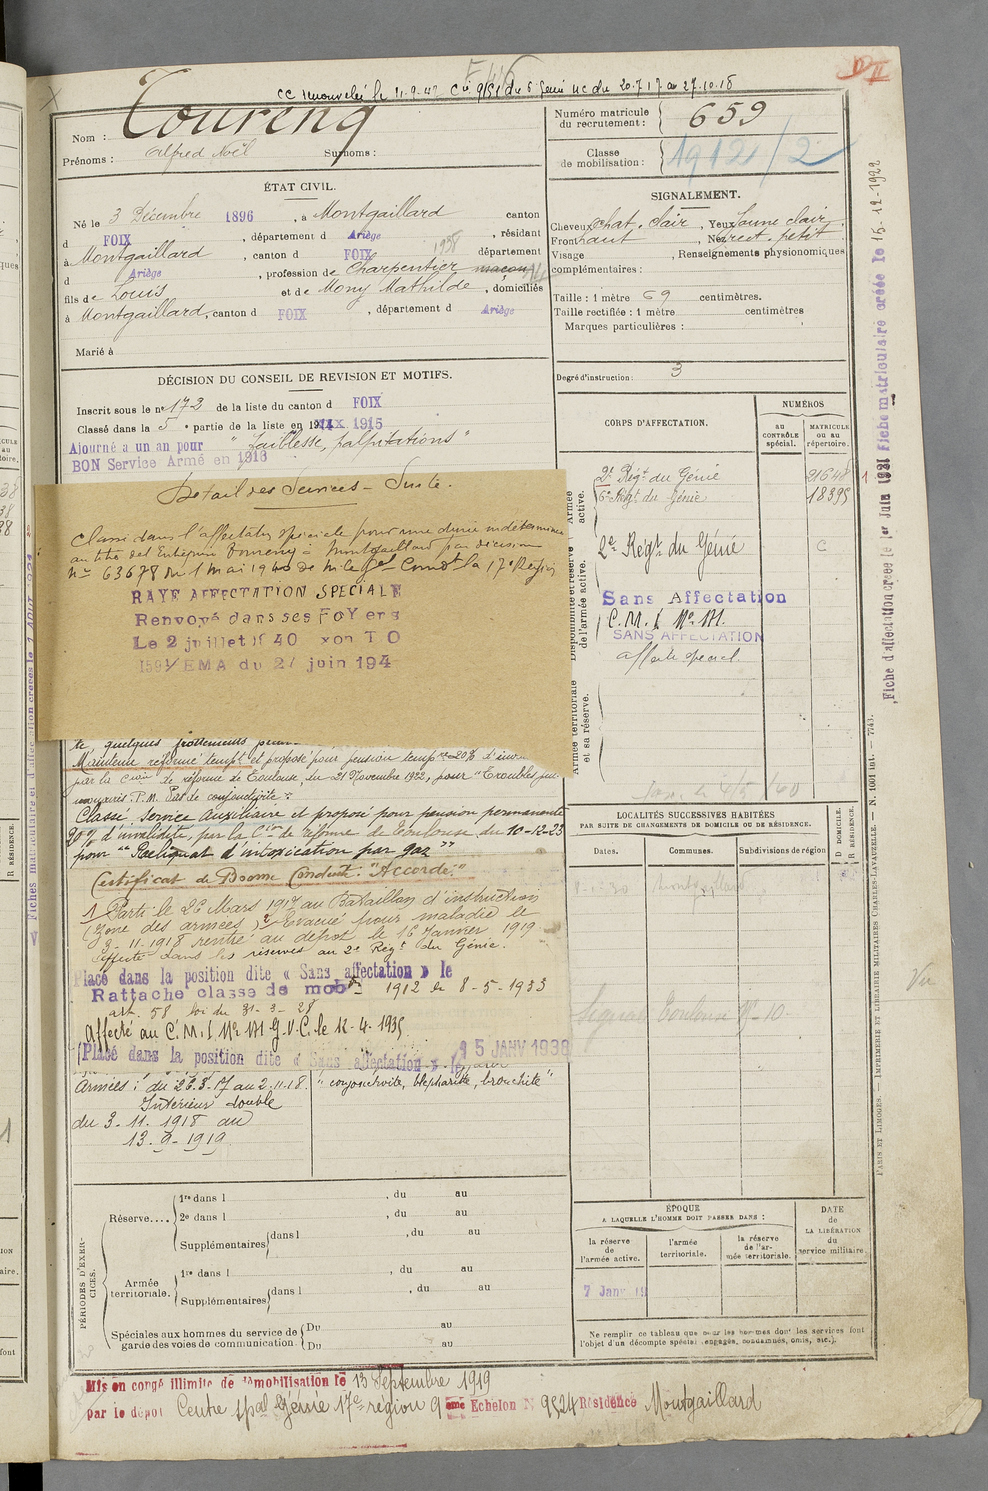 CC renouvelé le 11.9.42 Cie 9/51 du 5 Génie UC du 20.7.17 au 27.10.18
Nom : Toureng
Prénoms : Alfred Noël Surnoms :
Numéro matricule du recrutement : 659
Classe de mobilisation : 1912/2
ÉTAT CIVIL.
Né le 3 Décembre 1896, à Montgaillard canton
d FOIX, département d Ariège, résidant
à Montgaillard, canton d FOIX département
d Ariège, profession de Charpentier maçon
fils de Louis et de Mony Mathilde, domiciliés
à Montgaillard, canton d FOIX, département d Ariège
Marié à
SIGNALEMENT.
Cheveux chat. clair, Yeux jaune clair
Front haut, Nez rect. petit
Visage , Renseignements physionomiques
complémentaires :
Taille : 1 mètre 69 centimètres.
Taille rectifiée : 1 mètre centimètres
Marques particulières :
Degré d'instruction : 3
DÉCISION DU CONSEIL DE REVISION ET MOTIFS.
Inscrit sous le n° 173 de la liste du canton d FOIX
Classé dans la 5e partie de la liste en 1915
Ajourné a un an pour "faiblesse, palpitations"
BON Service Armé en 1916
CORPS D'AFFECTATION.
NUMÉROS
au CONTRÔLE spécial.
MATRICULE ou au répertoire.
Armée active.
2e Régt du Génie 21648
6e Régt du Génie 18395
Disponibilité et réserve de l'armée active.
2e Régt du Génie C
Sans Affectation
C.M.I No 171.
SANS AFFECTATION
affecté spécial.
Armée territoriale et sa réserve.
Détail des Services - Suite.
Classé dans l'affectation spéciale pour une durée indéterminée
au titre de l'Entreprise Toureng à Montgaillard par décision
No 63678 du 1 mai 1940 de Mr le Gal Comdt la 17e Région
RAYE AFFECTATION SPECIALE
Renvoyé dans ses FOYers
Le 2 juillet 1940 xon T O
1591/EMA du 27 juin 194
te, quelques frottements
Maintenu réformé tempre et proposé pour pension tempre 20%
par la Cion de réforme de Toulouse, du 21 Novembre 1922, pour "Troubles
P.M. Pas de conjonctivite".
Classé service auxiliaire et proposé pour pension permanente
20% d'invalidité, par la Cion de réforme de Toulouse du 10-12-23
pour "Reliquat d'intoxication par gaz"
Certificat de Bonne Conduite. "Accordé."
1 Parti le 26 Mars 1917 au Bataillon d'instruction
(Zone des armées) 2 Evacué pour maladie le
3-11-1918 rentré au dépôt le 16 Janvier 1919
Affecté dans les réserves au 2e Régt du Génie.
Placé dans la position dite « Sans affectation » le
Rattaché classe de mobon 1912 le 8-5-1933
art. 58 loi du 31-3-28
Affecté au C.M.I No 171 G.V.C. le 12-4-1935
Placé dans la position dite « Sans affectation » le 15 JANV 1938
Armées : du 26.3.17 au 2.11.18.
Intérieur double
du 3.11.1918 au
13.9.1919
"conjonctivite, blépharite, bronchite"
LOCALITÉS SUCCESSIVES HABITÉES
PAR SUITE DE CHANGEMENTS DE DOMICILE OU DE RÉSIDENCE.
Dates.
Communes.
Subdivisions de région
D DOMICILE.
R RÉSIDENCE.
Montgaillard
Signal Toulouse No 10.
PÉRIODES D'EXERCICES.
Réserve.... 1re dans l , du au
2e dans l , du au
Supplémentaires dans l , du au
Armée territoriale. 1re dans l , du au
Supplémentaires dans l , du au
Spéciales aux hommes du service de garde des voies de communication. Du au
Du au
ÉPOQUE
A LAQUELLE L'HOMME DOIT PASSER DANS :
la réserve de l'armée active.
l'armée territoriale.
la réserve de l'armée territoriale.
DATE DE LA LIBÉRATION du service militaire
7 Janv 19
Ne remplir ce tableau que pour les hommes dont les services font l'objet d'un décompte spécial (engagés, condamnés, omis, etc.).
Mis en congé illimité de démobilisation le 13 Septembre 1919
par le dépôt Centre spal Génie 17e région 9 ème Echelon N° 9524 Résidence Montgaillard
Fiche d'affectation créée le 1er Juin 1921 Fiche matriculaire créée le 15-12-1922
PARIS ET LIMOGES. — IMPRIMERIE ET LIBRAIRIE MILITAIRES CHARLES-LAVAUZELLE. — N. 1001 int. — 7743.
Vu